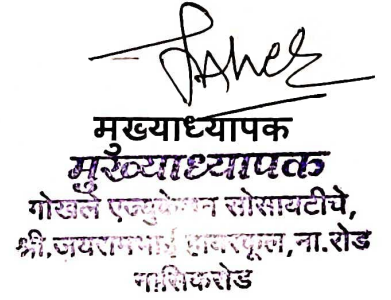 मुख्याध्यापक
मुख्याध्यापक
गोखले एज्युकेशन सोसायटीचे,
श्री.जयरामभाई हायस्कूल,ना.रोड
नाशिकरोड